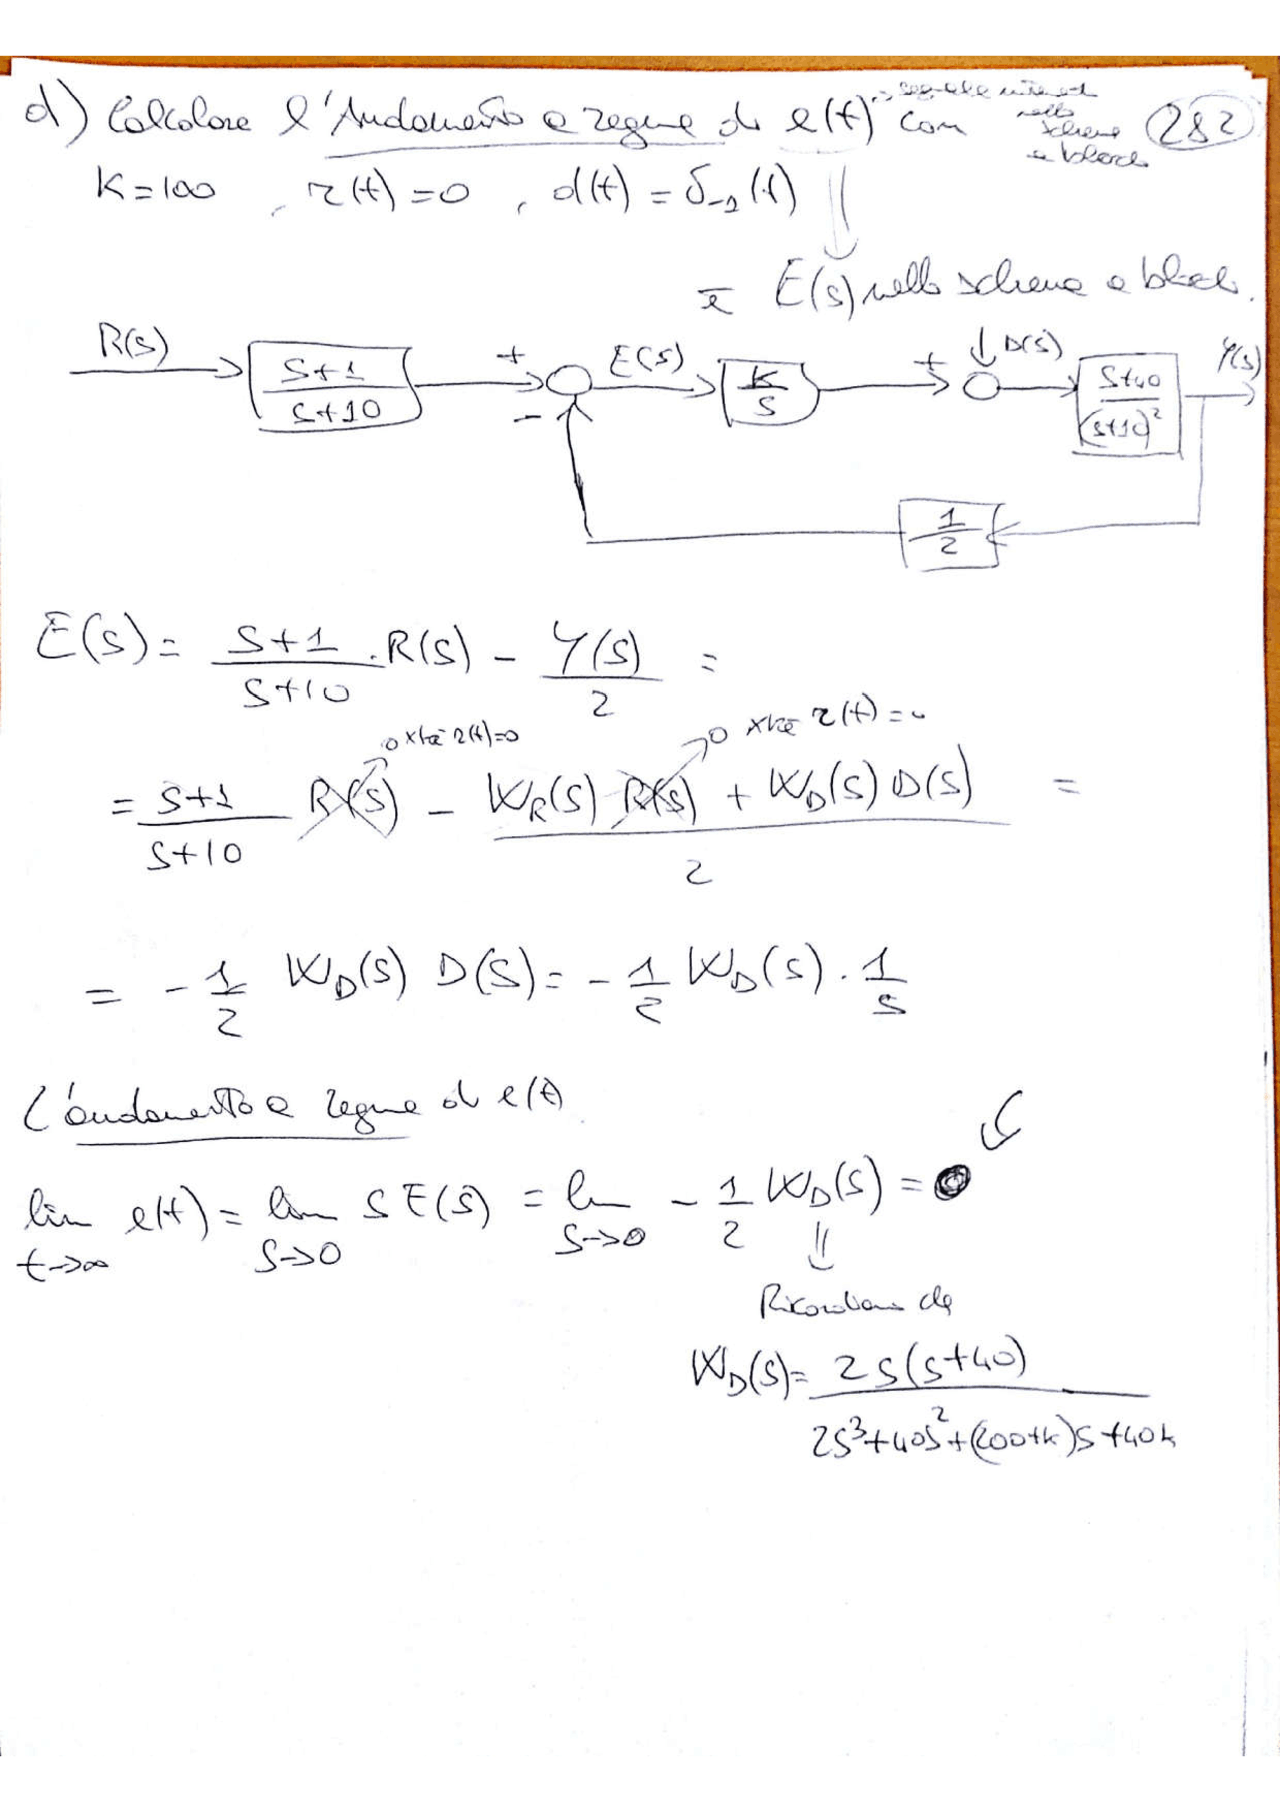 d) Calcolare l'Andamento a regime di e(t) con
segnale interno
nello
schema
a blocchi
282
K=100 , r(t)=0 , d(t) = δ₋₁(t)
è E(s) nello schema a blocchi.
R(s)
s+1
s+10
+
-
E(s)
K
s
+
D(s)
s+40
(s+10)²
Y(s)
1
2
E(s) = s+1/s+10 · R(s) - Y(s)/2 =
0 xkè r(t)=0
0 xkè r(t)=0
= s+1/s+10 R(s) - W_R(s) R(s) + W_D(s) D(s)/2 =
= - 1/2 W_D(s) D(s) = - 1/2 W_D(s) · 1/s
L'andamento a regime di e(t)
lim t->∞ e(t) = lim s->0 s E(s) = lim s->0 - 1/2 W_D(s) = 0
Ricordiamo che
W_D(s) = 2s(s+40)/2s³+40s²+(200+k)s+40k